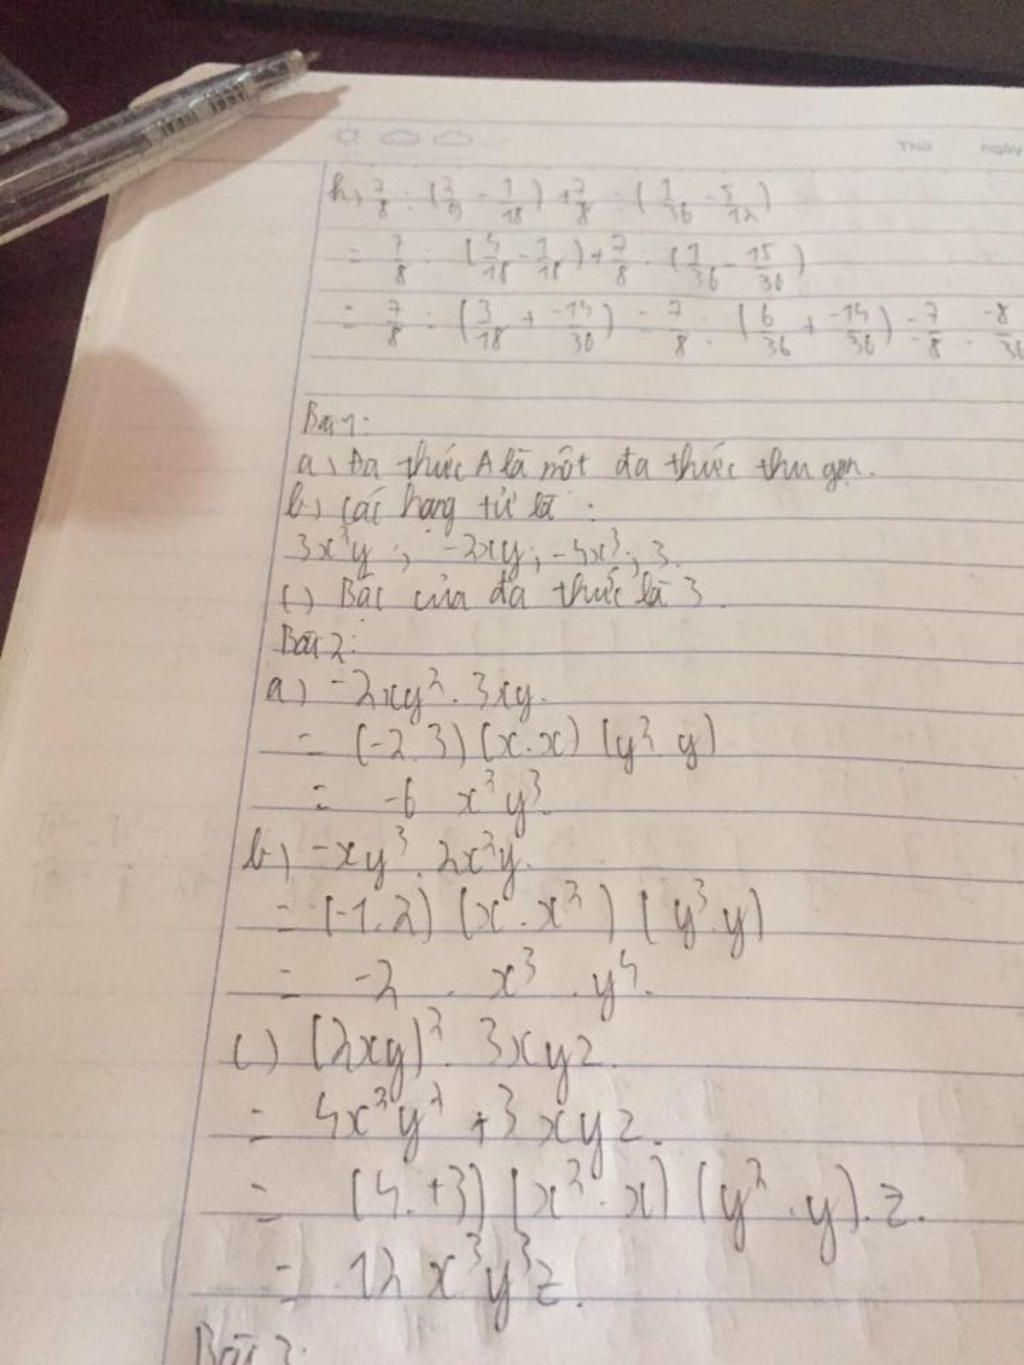 h) 7/8 : (2/9 - 1/18) + 7/8 : (1/36 - 5/12)
= 7/8 : (4/18 - 1/18) + 7/8 : (1/36 - 15/36)
= 7/8 : (3/18 + -14/36) = 7/8 : (6/36 + -14/36) = 7/8 : -8/36
Bài 1:
a) Đa thức A là một đa thức thu gọn.
b) Các hạng tử là :
3x²y ; -2xy ; -4x³ ; 3.
c) Bậc của đa thức là 3
Bài 2:
a) -2xy² . 3xy.
= (-2.3) (x.x) (y² y)
= -6 x²y³.
b) -xy³ . 2x²y.
= (-1.2) (x . x²) (y³.y)
= -2 . x³ . y⁴.
c) (2xy)² . 3xyz.
= 4x²y² + 3xyz.
= (4.+3) (x² . x) (y² . y). z.
= 12 x³y³z.
Bài 3: